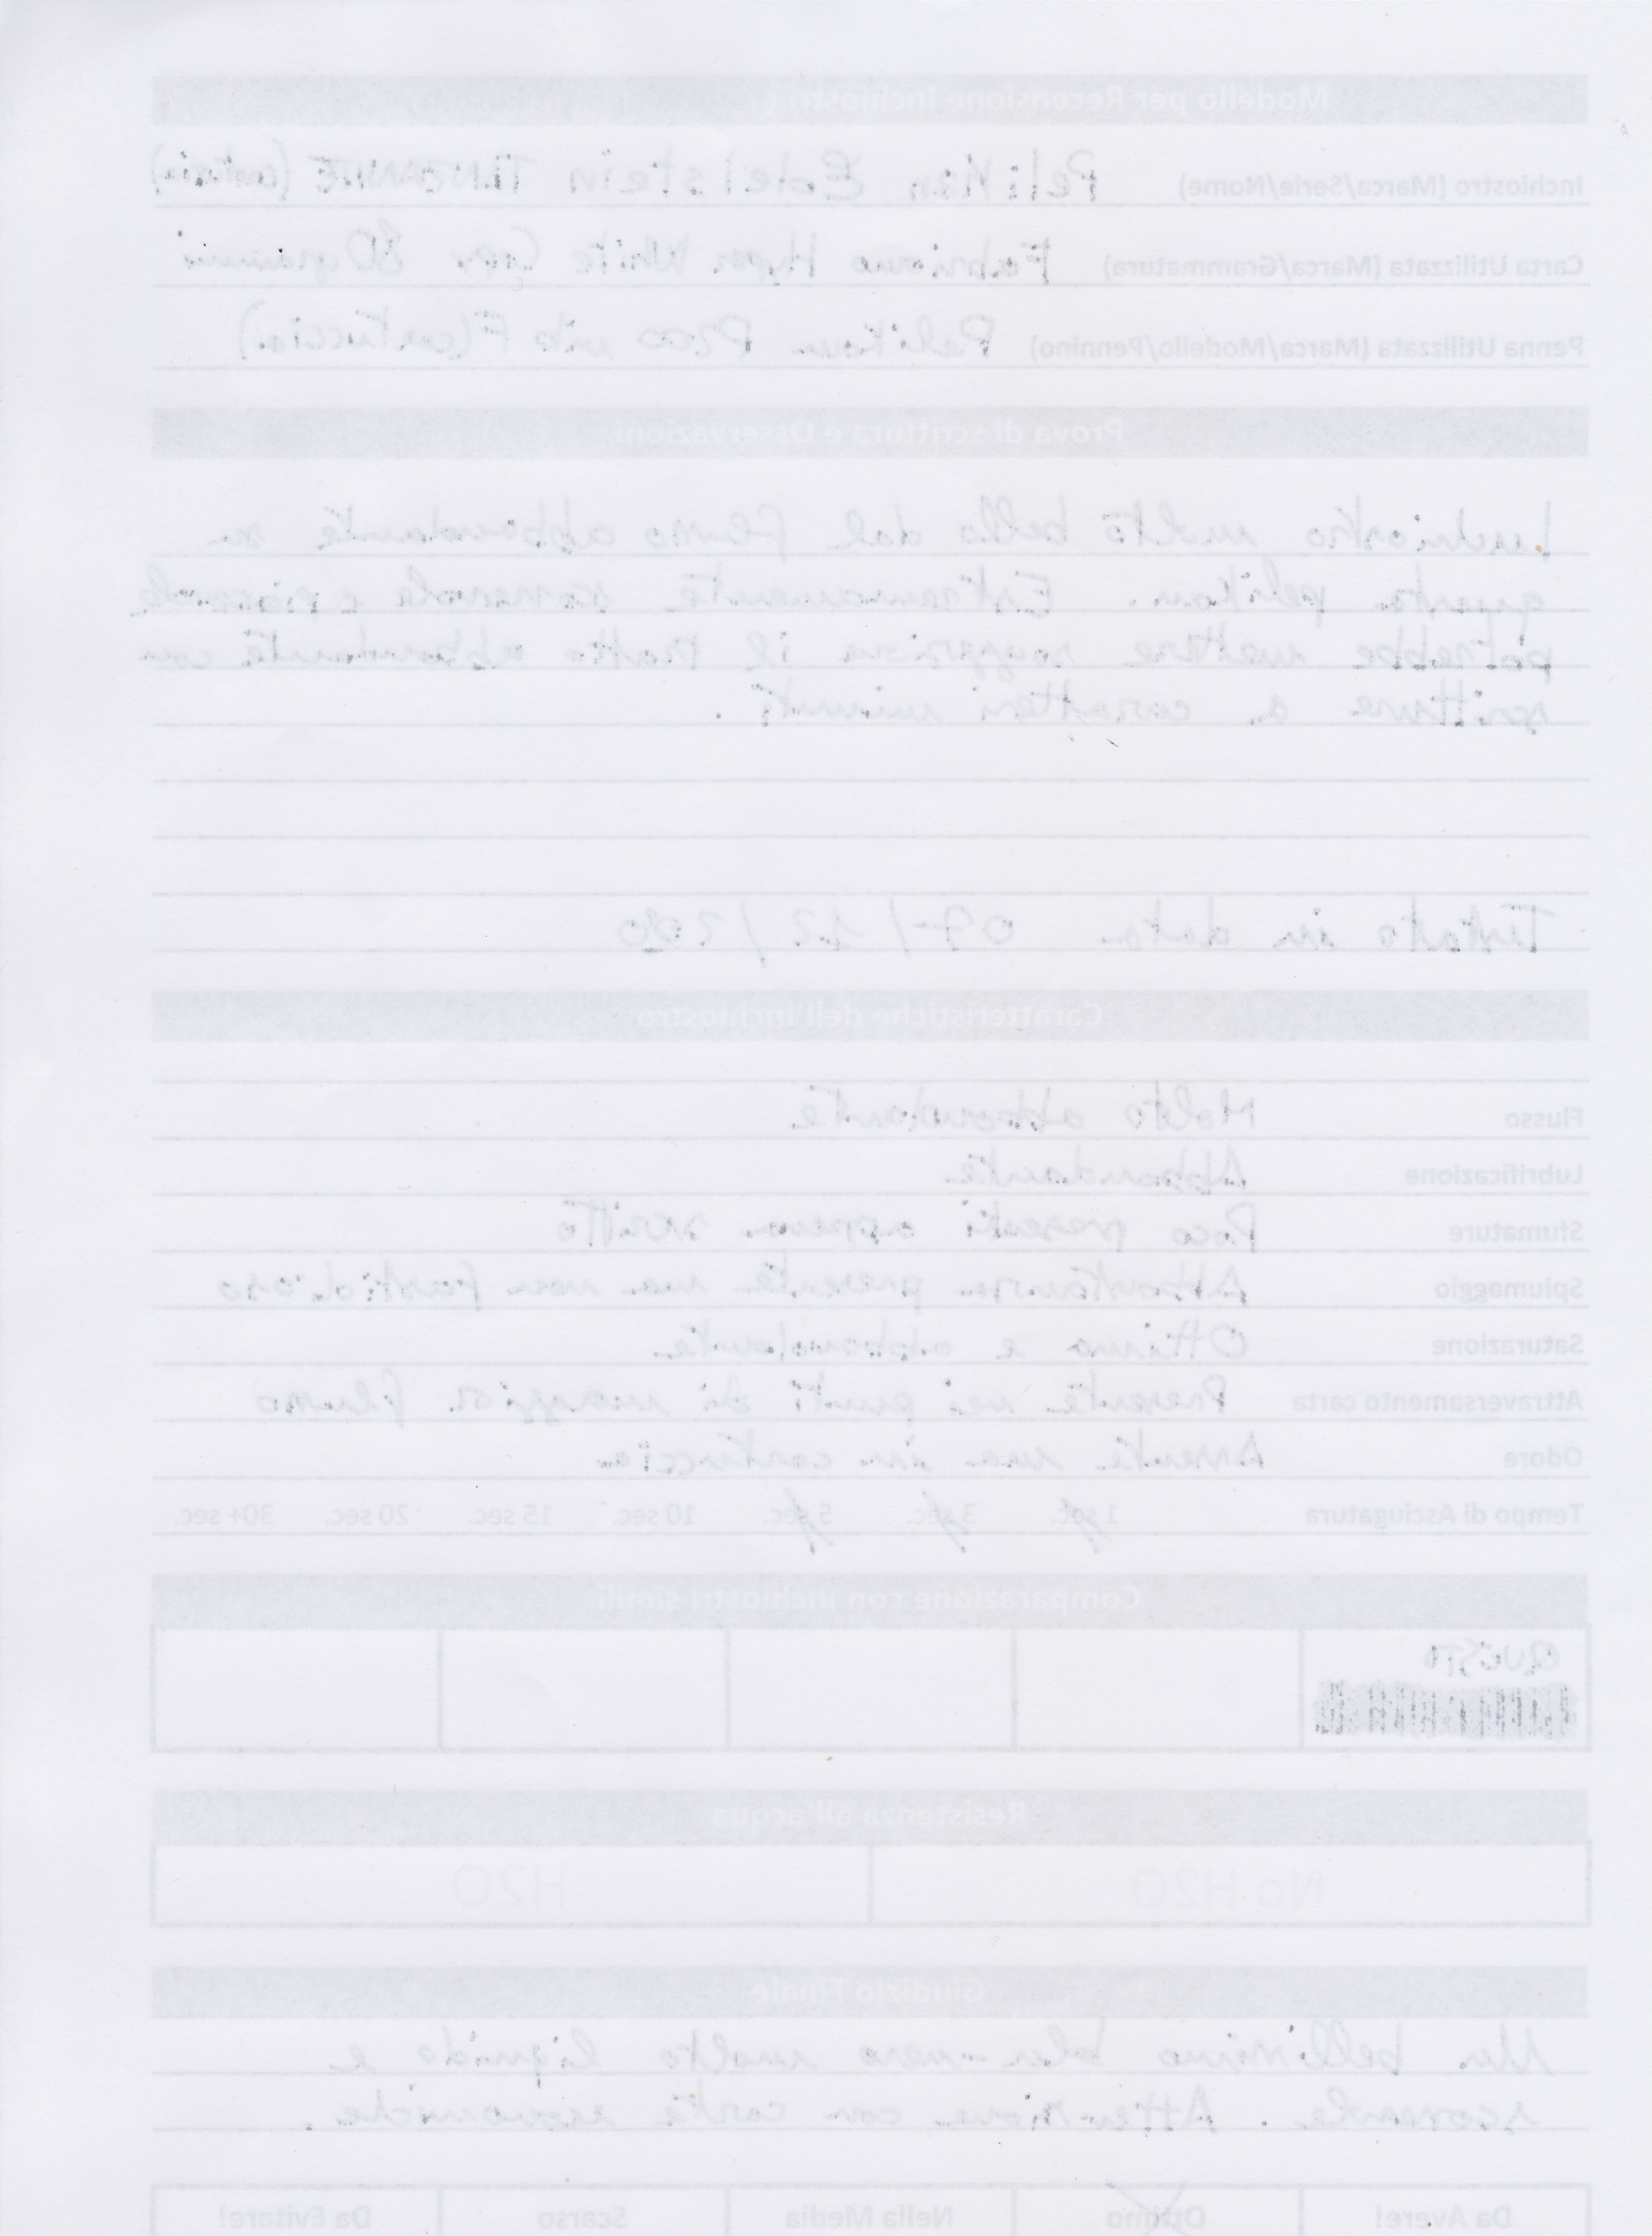 Modello per Recensione Inchiostri
Inchiostro (Marca/Serie/Nome) Pelikan Edelstein TANZANITE
Carta Utilizzata (Marca/Grammatura) Fabriano White 80 grammi
Penna Utilizzata (Marca/Modello/Pennino) Pelikan P200 nib F (cartuccia)
Prova di scrittura e Osservazioni
Inchiostro molto bello dal flusso abbondante su
questa pelikan. Estremamente scorrevole e piacevole
potrebbe mettere soggezione il tratto abbondante con
scritture a caratteri minuti.
Testato in data 07/12/2020
Caratteristiche dell'inchiostro
Flusso Molto abbondante
Lubrificazione Abbondante
Sfumature Poco presenti appena scritto
Spiumaggio Abbastanza presente ma non fastidioso
Saturazione Ottima e abbondante
Attraversamento carta Presente nei punti di maggior flusso
Odore Assente ma in cartuccia
Tempo di Asciugatura 1 sec. 3 sec. 5 sec. 10 sec. 15 sec. 20 sec. 30+ sec.
Comparazione con inchiostri simili
QUESTO
Resistenza all'acqua
No H2O H2O
Giudizio Finale
Un bellissimo blu-nero molto liquido e
scorrevole. Attenzione con carte economiche.
Da Avere! Ottimo Nella Media Scarso Da Evitare!